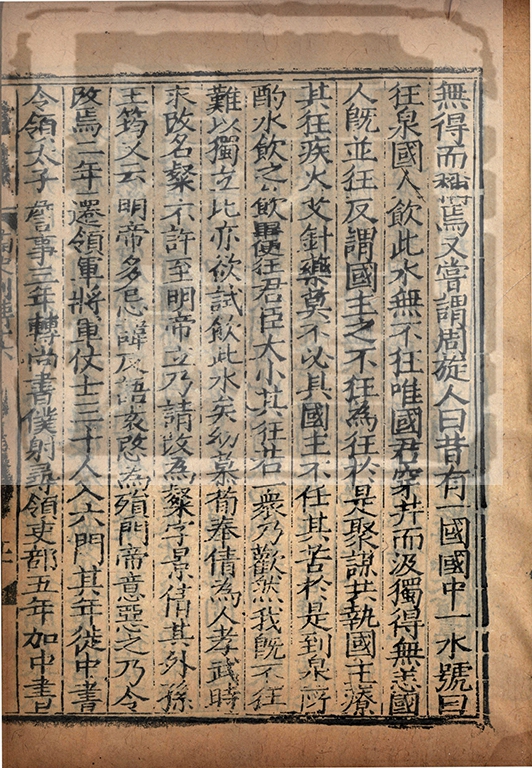 無得而稱焉又嘗謂周旋人曰昔有一國國中一水號曰
狂泉國人飲此水無不狂唯國君穿井而汲獨得無恙國
人旣並狂反謂國主之不狂為狂於是聚謀共執國主療
其狂疾火艾針藥莫不必具國主不任其苦於是到泉所
酌水飲之飲畢便狂君臣大小其狂若一衆乃歡然我旣不狂
難以獨立比亦欲試飲此水矣幼慕荀奉倩為人孝武時
求改名粲不許至明帝立乃請改為粲字景倩其外孫
王筠又云明帝多忌諱反語袁愍為殞門帝意惡之乃令
改焉二年遷領軍將軍仗士三十人入六門其年徙中書
令領太子詹事三年轉尚書僕射尋領吏部五年加中書